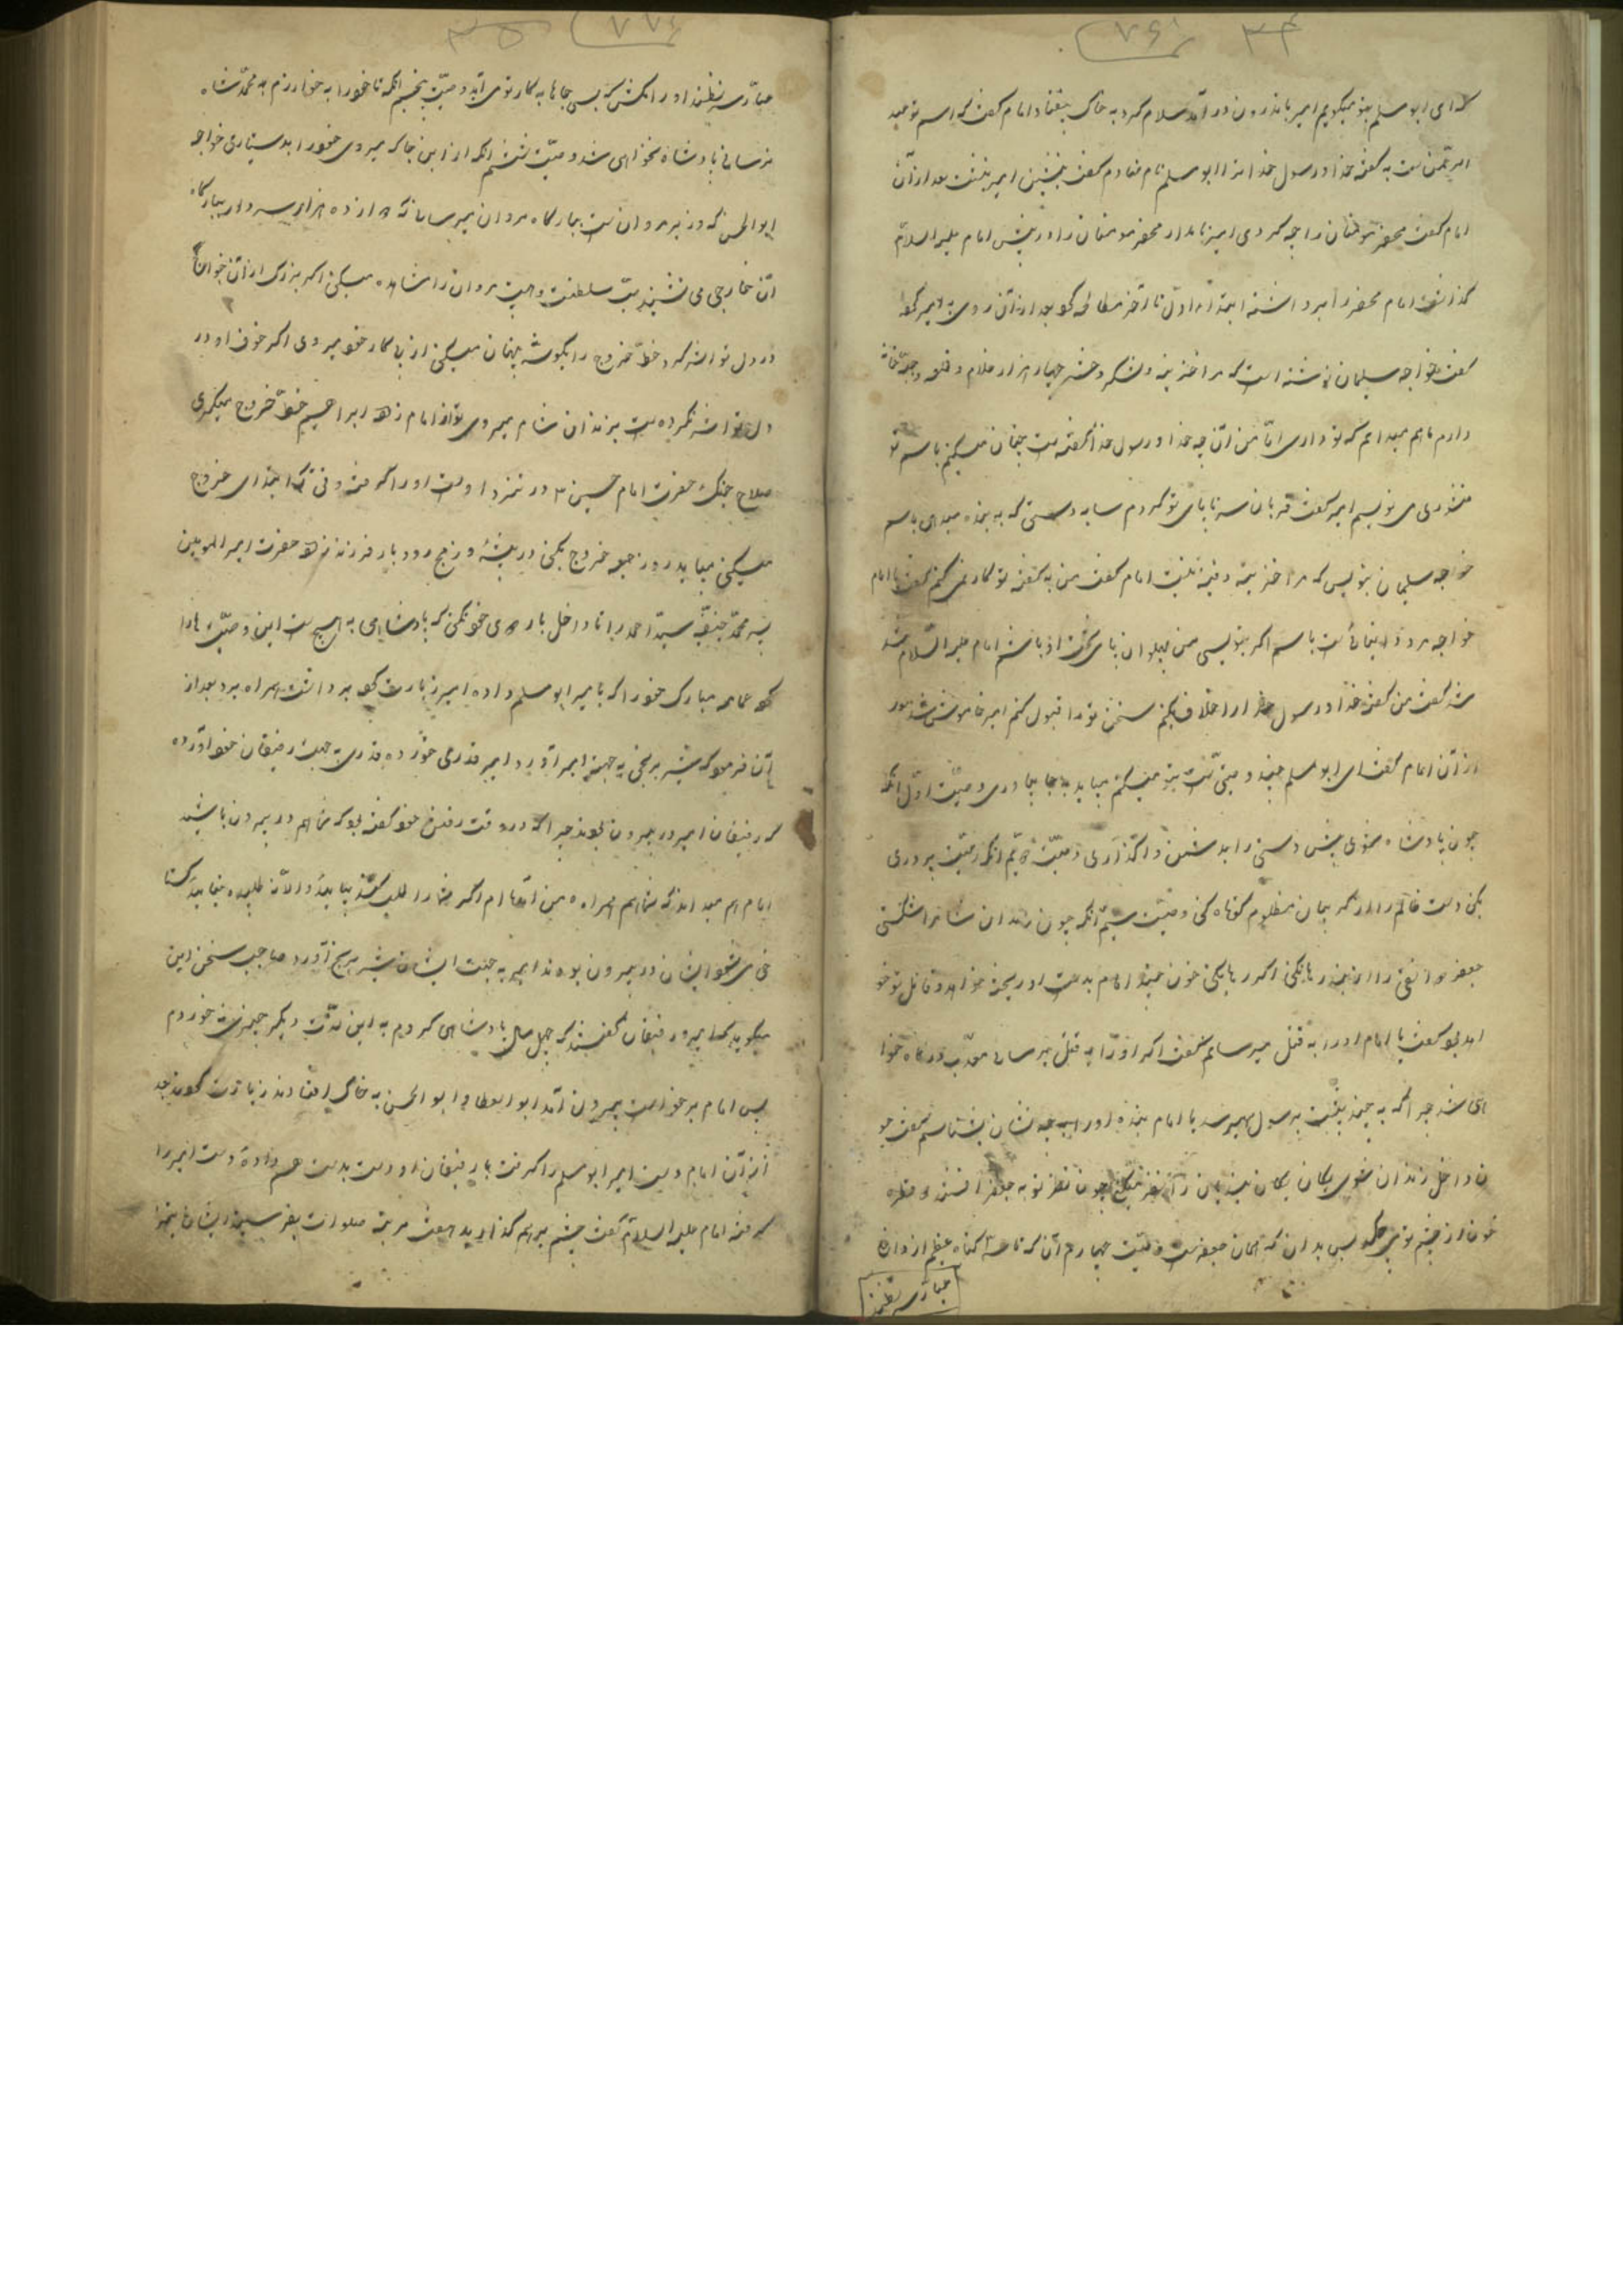 که ای ابو مسلم بتو میگویم امیر باندرون در آمد سلام کرد به خاک بیفتاد امام گفت که اسم تو عبد
الرحمن است به گفته خدا و رسول خدا ترا ابو مسلم نام نهادم گفت بنشین امیر بنشست بعد از آن
امام گفت محضر مومنان را چه کردی امیر نامدار محضر مومنان را در پیش امام علیه السلام
گذاشت امام محضر را برداشته از اول تا آخر مطالعه کرد بعد از آن روی به امیر کرد
گفت خواجه سلیمان نوشته است که مرا خزینه و لشکر و حشر چهار هزار غلام و قلعه و جبه خانه
دارم ما هم میدانیم که تو داری اما من آن چه خدا و رسول خدا گفته است چنان میکنم باسم تو
منشوری می نویسم امیر گفت قربان سر تا پای تو گردم سایه دستی که به بنده میدهی باسم
خواجه سلیمان بنویس که مرا خزینه و فینه نیست امام گفت من به گفته تو کار نمی کنم گفت یا امام
خواجه مرد دانائست باسم او بنویسی من پهلوان پای تخت او باشم امام علیه السلام تند
شد گفت من گفته خدا و رسول خدا را خلاف بکنم سخن تو را قبول کنم امیر خاموش شد بعد
از آن امام گفت ای ابو مسلم چند وصیت است بتو میکنم میباید بجا بیاوری وصیت اول آنکه
چون پادشاه شوی پیش دستی را به دشمن واگذاری وصیت دویم آنکه رعیت پروری
بکنی دست ظالم را از گریبان مظلوم کوتاه کنی وصیت سیم آنکه چون زندان شام را شکستی
جعفر دوانقی را از بند رها نکنی اگر رها بکنی خون چند امام بدست او ریخته خواهد و قاتل تو خو
اهد بود گفت یا امام او را به قتل میرسانم گفت اگر او را به قتل برسانی معذب درگاه خوا
هی شد چرا که به چند پشت به رسول میرسد یا امام بنده او را به چه نشان بشناسم گفت چو
ن داخل زندان شوی یکان یکان بندیان را نظر میکنی چون نظر تو به جعفر افتد دو قطره
خون از چشم تو می چکد پس بدان که همان جعفر است وصیت چهارم آن که تا سه گناه عظیم از دوان
صادر نشود
صادر نشود او را نکشی که بسی جاها به کار تو می آید وصیت پنجم آنکه تا خود را به خوارزم به محمد شاه
نرسانی پادشاه نخواهی شد وصیت ششم آنکه از این جا که میروی خود را بدستیاری خواجه
ابو الحسن که وزیر مروان است ببارگاه مروان میرسانی که دوازده هزار سردار ببارگاه
آن خارجی می نشیند سلطنت و هیبت مروان را مشاهده میکنی اگر بزرگی از آن خوانگا
در دل تو اثر کرد خط خروج را بگوشه پنهان میکنی از پی کار خود میروی اگر خوف او در
دل تو اثر نکرده است بزندان شام میروی تو از امام زاده ابراهیم خط خروج میگیری
صلاح جنگ حضرت امام حسین ع در نزد اوست او را گرفت وقتی که ابتدای خروج
میکنی میباید روز جمعه خروج بکنی در بیشه درنج رودبار فرزند زاده حضرت امیر المومنین
پسر محمد حنفیه سید احمد را تا داخل یاری خود نکنی که پادشاهی به هیچ است این وصیت ها را
کرد عمامه مبارک خود را که بامیر ابو مسلم داده امیر زیارت کرد برداشت همراه برد بعد از
آن فرمود که شیر برنجی به جهت امیر آورد امیر قدری خورده قدری به جهت رفیقان خود آورده
که رفیقان امیر در بیرون بودند چرا که در وقت رفتن خود گفته بود که شما هم در بیرون باشید
امام هم میداند که شما هم همراه من آمده ام اگر شما را طلب کند بیایید و الا نه طلبیده نیایید
ایشان در بیرون بودند امیر به جهت ایشان شیر برنج آورد صاحب سخن زین
میگوید که امیر و رفیقان گفتند که چهل سال پادشاهی کردیم به این لذت دیگر چیز نخوردم
پس امام برخواست بیرون آمد ابو العطا و ابو الحسن به خاک افتادند زیارت کردند بعد
از آن امام دست امیر ابو مسلم را گرفت با رفیقان او دست بدست هم داده دست امیر را
گرفته امام علیه السلام گفت چشم بر هم گذارید هفت مرتبه صلوات بفرستید ایشان چشم